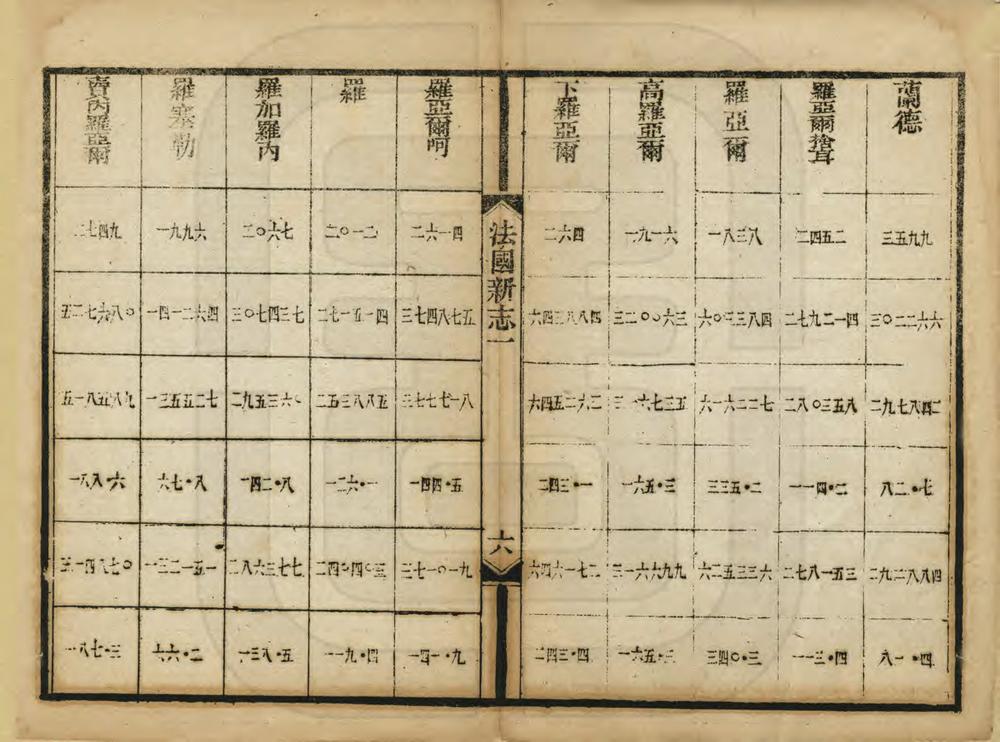 蘭德
三五九九
三〇二二六六
二九七八四二
八二·七
二九二八八四
八一·四
羅亞爾捨耳
二四五二
二七九二一四
二八〇三五八
一一四·二
二七八一五三
一一三·四
羅亞爾
一八三八
六〇三三八四
六一六二二七
三三五·二
六二五三三六
三四〇·三
高羅亞爾
一九一六
三二〇〇六三
三一六七三五
一六五·三
三一六六九九
一六五·三
下羅亞爾
二六四
六四三八八四
六四五二六二
二四三·一
六四六一七二
二四三·四
法國新志一
六
羅亞爾呵
二六一四
三七四八七五
三七七七一八
一四四·五
三七一〇一九
一四一·九
羅
二〇一二
二七一五一四
二五三八八五
一二六·一
二四〇四〇三
一一九·四
羅加羅內
二〇六七
三〇七四三七
二九五三六〇
一四二·八
二八六三七七
一三八·五
羅塞勒
一九九六
一四一二六四
一三五五二七
六七·八
一三二一五一
六六·二
賣內羅亞爾
二七四九
五二七六八〇
五一八五八九
一八八·六
五一四八七〇
一八七·三